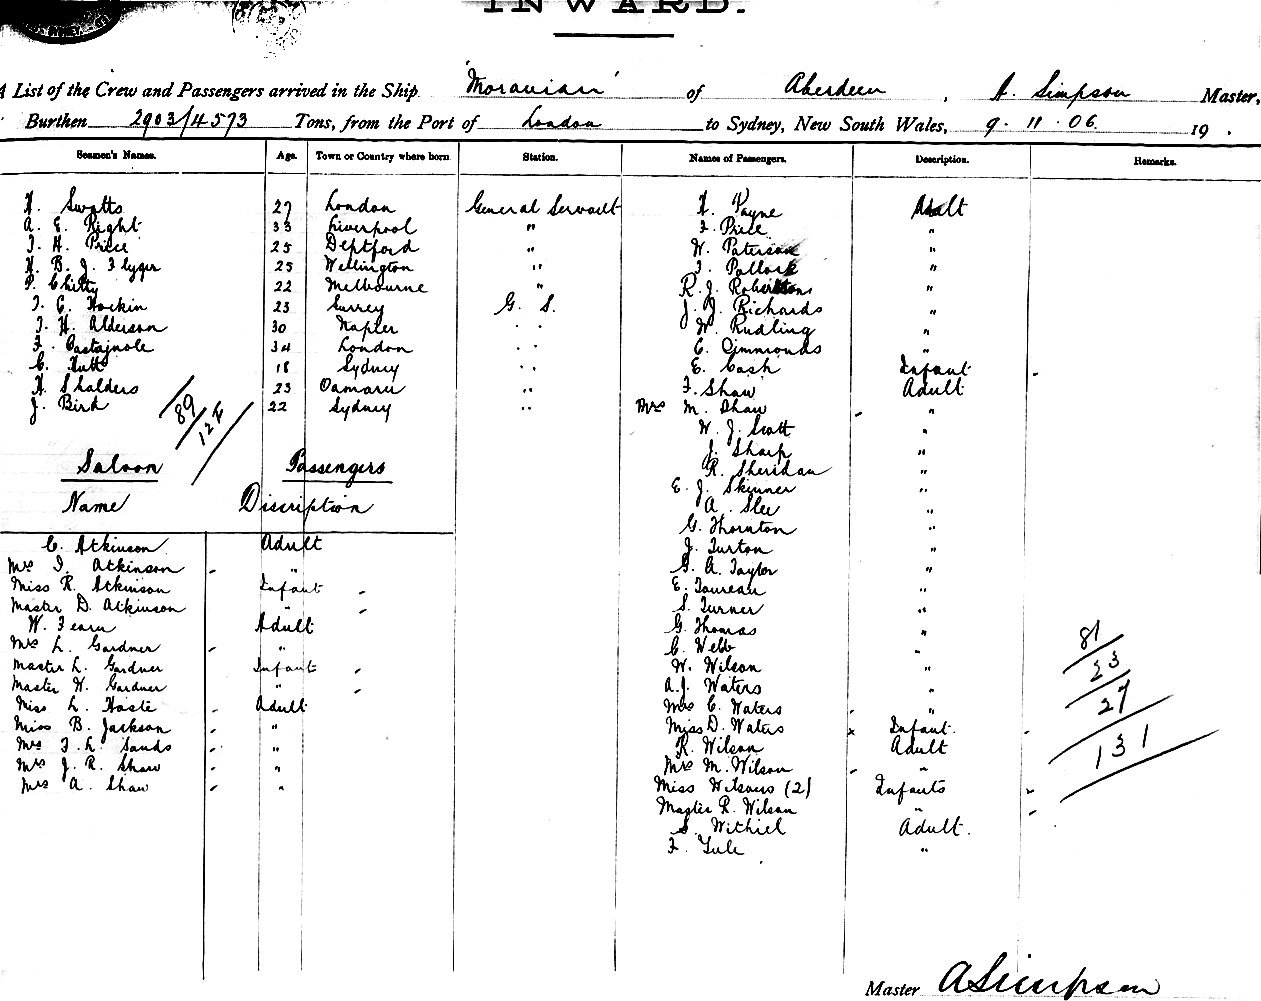 INWARD.
A List of the Crew and Passengers arrived in the Ship 'Moravian' of Aberdeen, A. Simpson Master,
Burthen 2903/4573 Tons, from the Port of London to Sydney, New South Wales, 9. 11. 06. 19 .
Seamen's Names. Age. Town or Country where born Station.
H. Swatts 27 London General Servant
A. E. Right 33 Liverpool "
T. H. Price 25 Deptford "
H. B. J. Flyger 25 Wellington "
P. Chitty 22 Melbourne "
T. C. Hockin 23 Surrey G. S.
T. H. Alderson 30 Napier " "
F. Castagnole 34 London " "
C. Hutt 18 Sydney " "
H. Shalders 23 Oamaru "
J. Bird 22 Sydney "
89
124
Saloon Passengers
Name Discription
C. Atkinson Adult
Mrs I. Atkinson "
Miss R. Atkinson Infant
Master D. Atkinson "
W. Fearn Adult
Mrs L. Gardner "
Master L. Gardner Infant
Master H. Gardner "
Miss L. Haste Adult
Miss B. Jackson "
Mrs F. L. Sands "
Mrs J. R. Shaw "
Mrs A. Shaw "
Names of Passengers. Description. Remarks.
H. Payne Adult
F. Price "
W. Paterson "
F. Pollock "
R. J. Robertson "
J. J. Richards
W. Rudling "
C. Cimmonds "
E. Cash Infant
F. Shaw Adult
Mrs M. Shaw "
W. J. Scott "
J. Sharp "
R. Sheridan "
E. J. Skinner "
A. Slee
G. Thornton "
J. Turton "
G. A. Taylor "
E. Toureau "
S. Turner "
G. Thomas "
C. Webb "
W. Wilson "
A. J. Waters "
Mrs C. Waters "
Miss D. Waters Infant
R. Wilson Adult
Mrs M. Wilson "
Miss Wilsons (2) Infants
Master R. Wilson "
S. Withiel Adult.
F. Tule "
81
23
27
131
Master A Simpson